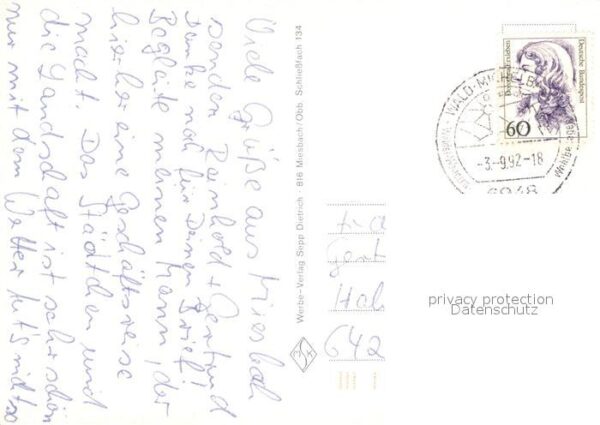 Viele Grüße aus Miesbach
senden Reinhold + Gertrud
Danke noch für Deinen Brief!
Begleite meinen Mann, der
hierher eine Geschäftsreise
macht. Das Städtchen und
die Landschaft ist sehr schön
nur mit dem Wetter hut's nicht so
Werbe-Verlag Sepp Dietrich · 816 Miesbach/Obb. Schließfach 134
Deutsche Bundespost
60
WALD-MICHELBACH
-3.-9.92-18
6948
642
privacy protection
Datenschutz